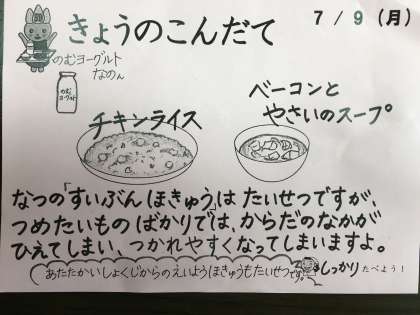 きょうのこんだて
7/9(月)
のむヨーグルト
なのん
のむ
ヨーグルト
チキンライス
ベーコンと
やさいのスープ
なつの「すいぶんほきゅう」は たいせつですが、
つめたいもの ばかりでは、からだのなかが
ひえてしまい、つかれやすくなってしまいますよ。
あたたかいしょくじからのえいようほきゅうもたいせつです。
しっかり たべよう!